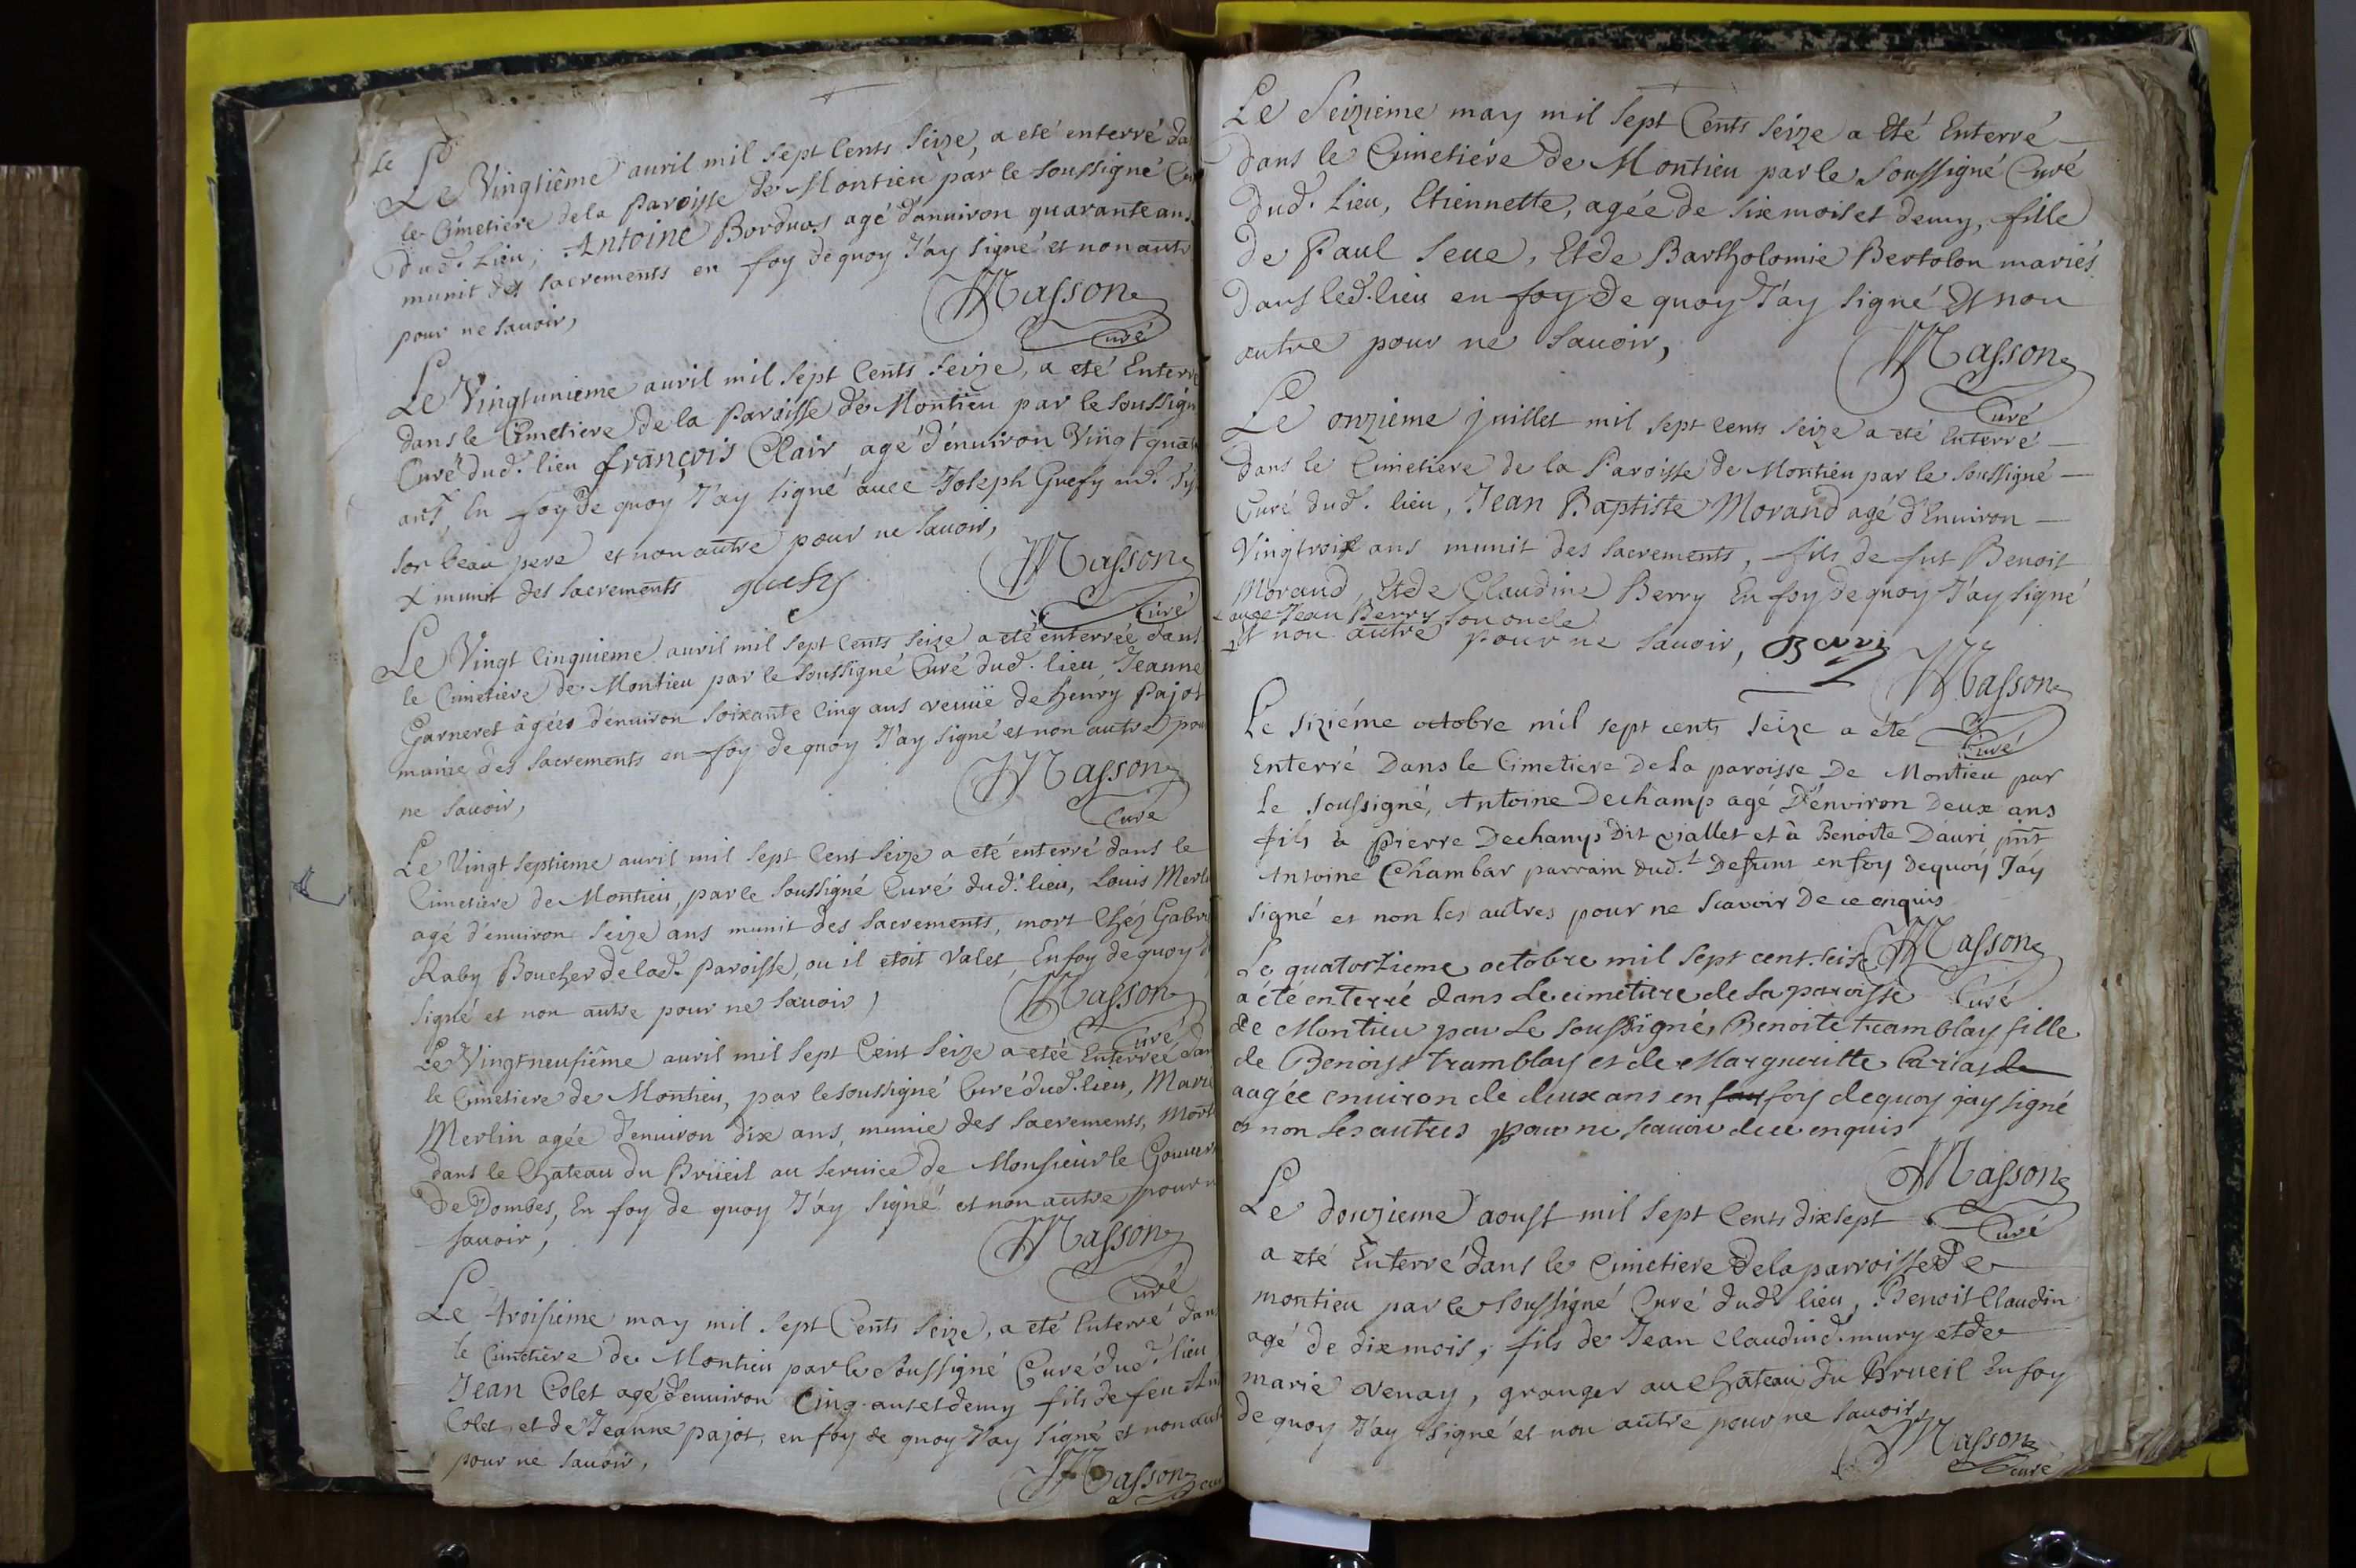 Le
Le Vingtiême auril mil sept Cents Seize, a eté enterré
le Cimetiere dela Paroisse de Montieu par le soussigné
dud. Lieu, Antoine Borduas agé d'anuiron quarante ans
munit des sacrements en foy de quoy J'ay signé et non autre
pour ne sauoir,
Masson
Curé
Le Vingtunieme auril mil sept Cents seize, a eté Enterré
dans le Cimetiere de la Paroisse de Montieu par le soussigné
Curé dud. lieu françois Clair agé d'enuiron Vingt
ans, En foy de quoy J'ay signé auec Joseph Guefy
son beau pere et non autre pour ne sauoir,
x munit des sacrements guefy
Masson
Curé
Le Vingt Cinquieme auril mil sept Cents seize a eté enterrée dans
le Cimetiere de Montieu par le soussigné Curé dud. lieu Jeanne
Garneret âgée d'enuiron soixante Cinq ans veuue de henry Pajot
munie des sacrements en foy de quoy J'ay signé et non autre pour
ne sauoir,
Masson
Curé
Le Vingt septieme auril mil sept Cent seize a eté enterré dans le
Cimetiere de Montieu, par le soussigné Curé dud. lieu, Louis
agé d'enuiron seize ans munit des sacrements, mort Chéz
Raby Boucher de lad. Paroisse, ou il etoit Valet, En foy de quoy
signé et non autre pour ne sauoir,
Masson
Curé
Le Vingtneufiême auril mil sept Cent seize a eteé Enterreé
le Cimetiere de Montieu, par le soussigné Curé dud. lieu,
Merlin agée d'enuiron dix ans, munie des sacrements,
dans le Château du Brüeil au seruice de Monsieur le
De Dombes, En foy de quoy J'ay signé et non autre pour
sauoir,
Masson
Curé
Le troisieme may mil sept Cents seize, a eté Enterré dans
le Cimetiere de Montieu par le soussigné Curé dud. lieu
Jean Colet agé d'enuiron Cinq ans et demy fils de feu
Colet et de Jeanne pajot, en foy de quoy J'ay signé et non
pour ne sauoir,
Masson
Le Seizieme may mil sept Cents seize a Eté Enterré
dans le Cimetiére de Montieu par le soussigné Curé
dud. Lieu, Etiennette, agée de six mois et demy, fille
de Paul Seue, Et de Bartholomie Bertolon mariés
dans led. lieu en foy de quoy J'ay signé Et non
autre pour ne sauoir,
Masson
Curé
Le onzieme juillet mil sept cents seize a eté Enterré
dans le Cimetiere de la Paroisse de Montieu par le soussigné
Curé dud. lieu, Jean Baptiste Morand agé d'Enuiron
Vingtrois ans munit des sacrements, fils de fut Benoit
Morand, Et de Claudine Berry En foy de quoy J'ay signé
x auec Jean Berry son oncle
et non autre pour ne sauoir, Berry
Masson
Curé
Le siziéme octobre mil sept cents seize a été
Enterré Dans le Cimetiere De la paroisse De Montieu par
le soussigné, Antoine Dechamp agé D'environ Deux ans
fils à Pierre Dechamps Dit viallet et à Benoite Dauri pnt
Antoine Chambar parrain dud.t Defunt en foy Dequoy J'ay
signé et non les autres pour ne scavoir De ce enquis
Masson
Curé
Le quatorzieme octobre mil sept cent seise
a été enterré dans le cimetiere de la paroisse
de Montieu par Le soussigné, Benoite tramblay fille
de Benoist tramblay et de Margueritte
aagée enuiron de deux ans en foy dequoy jay signé
et non les autres pour ne scauoir de ce enquis
Masson
Curé
Le douzieme aoust mil sept Cents dix sept
a eté Enterré dans le Cimetiere de la parroisse de
montieu par le soussigné Curé dud. lieu, Benoit Claudin
agé de dix mois, fils de Jean Claudin d. mury et de
marie venay, granger au Château du Brueil En foy
de quoy J'ay signé et non autre pour ne sauoir,
Masson
curé